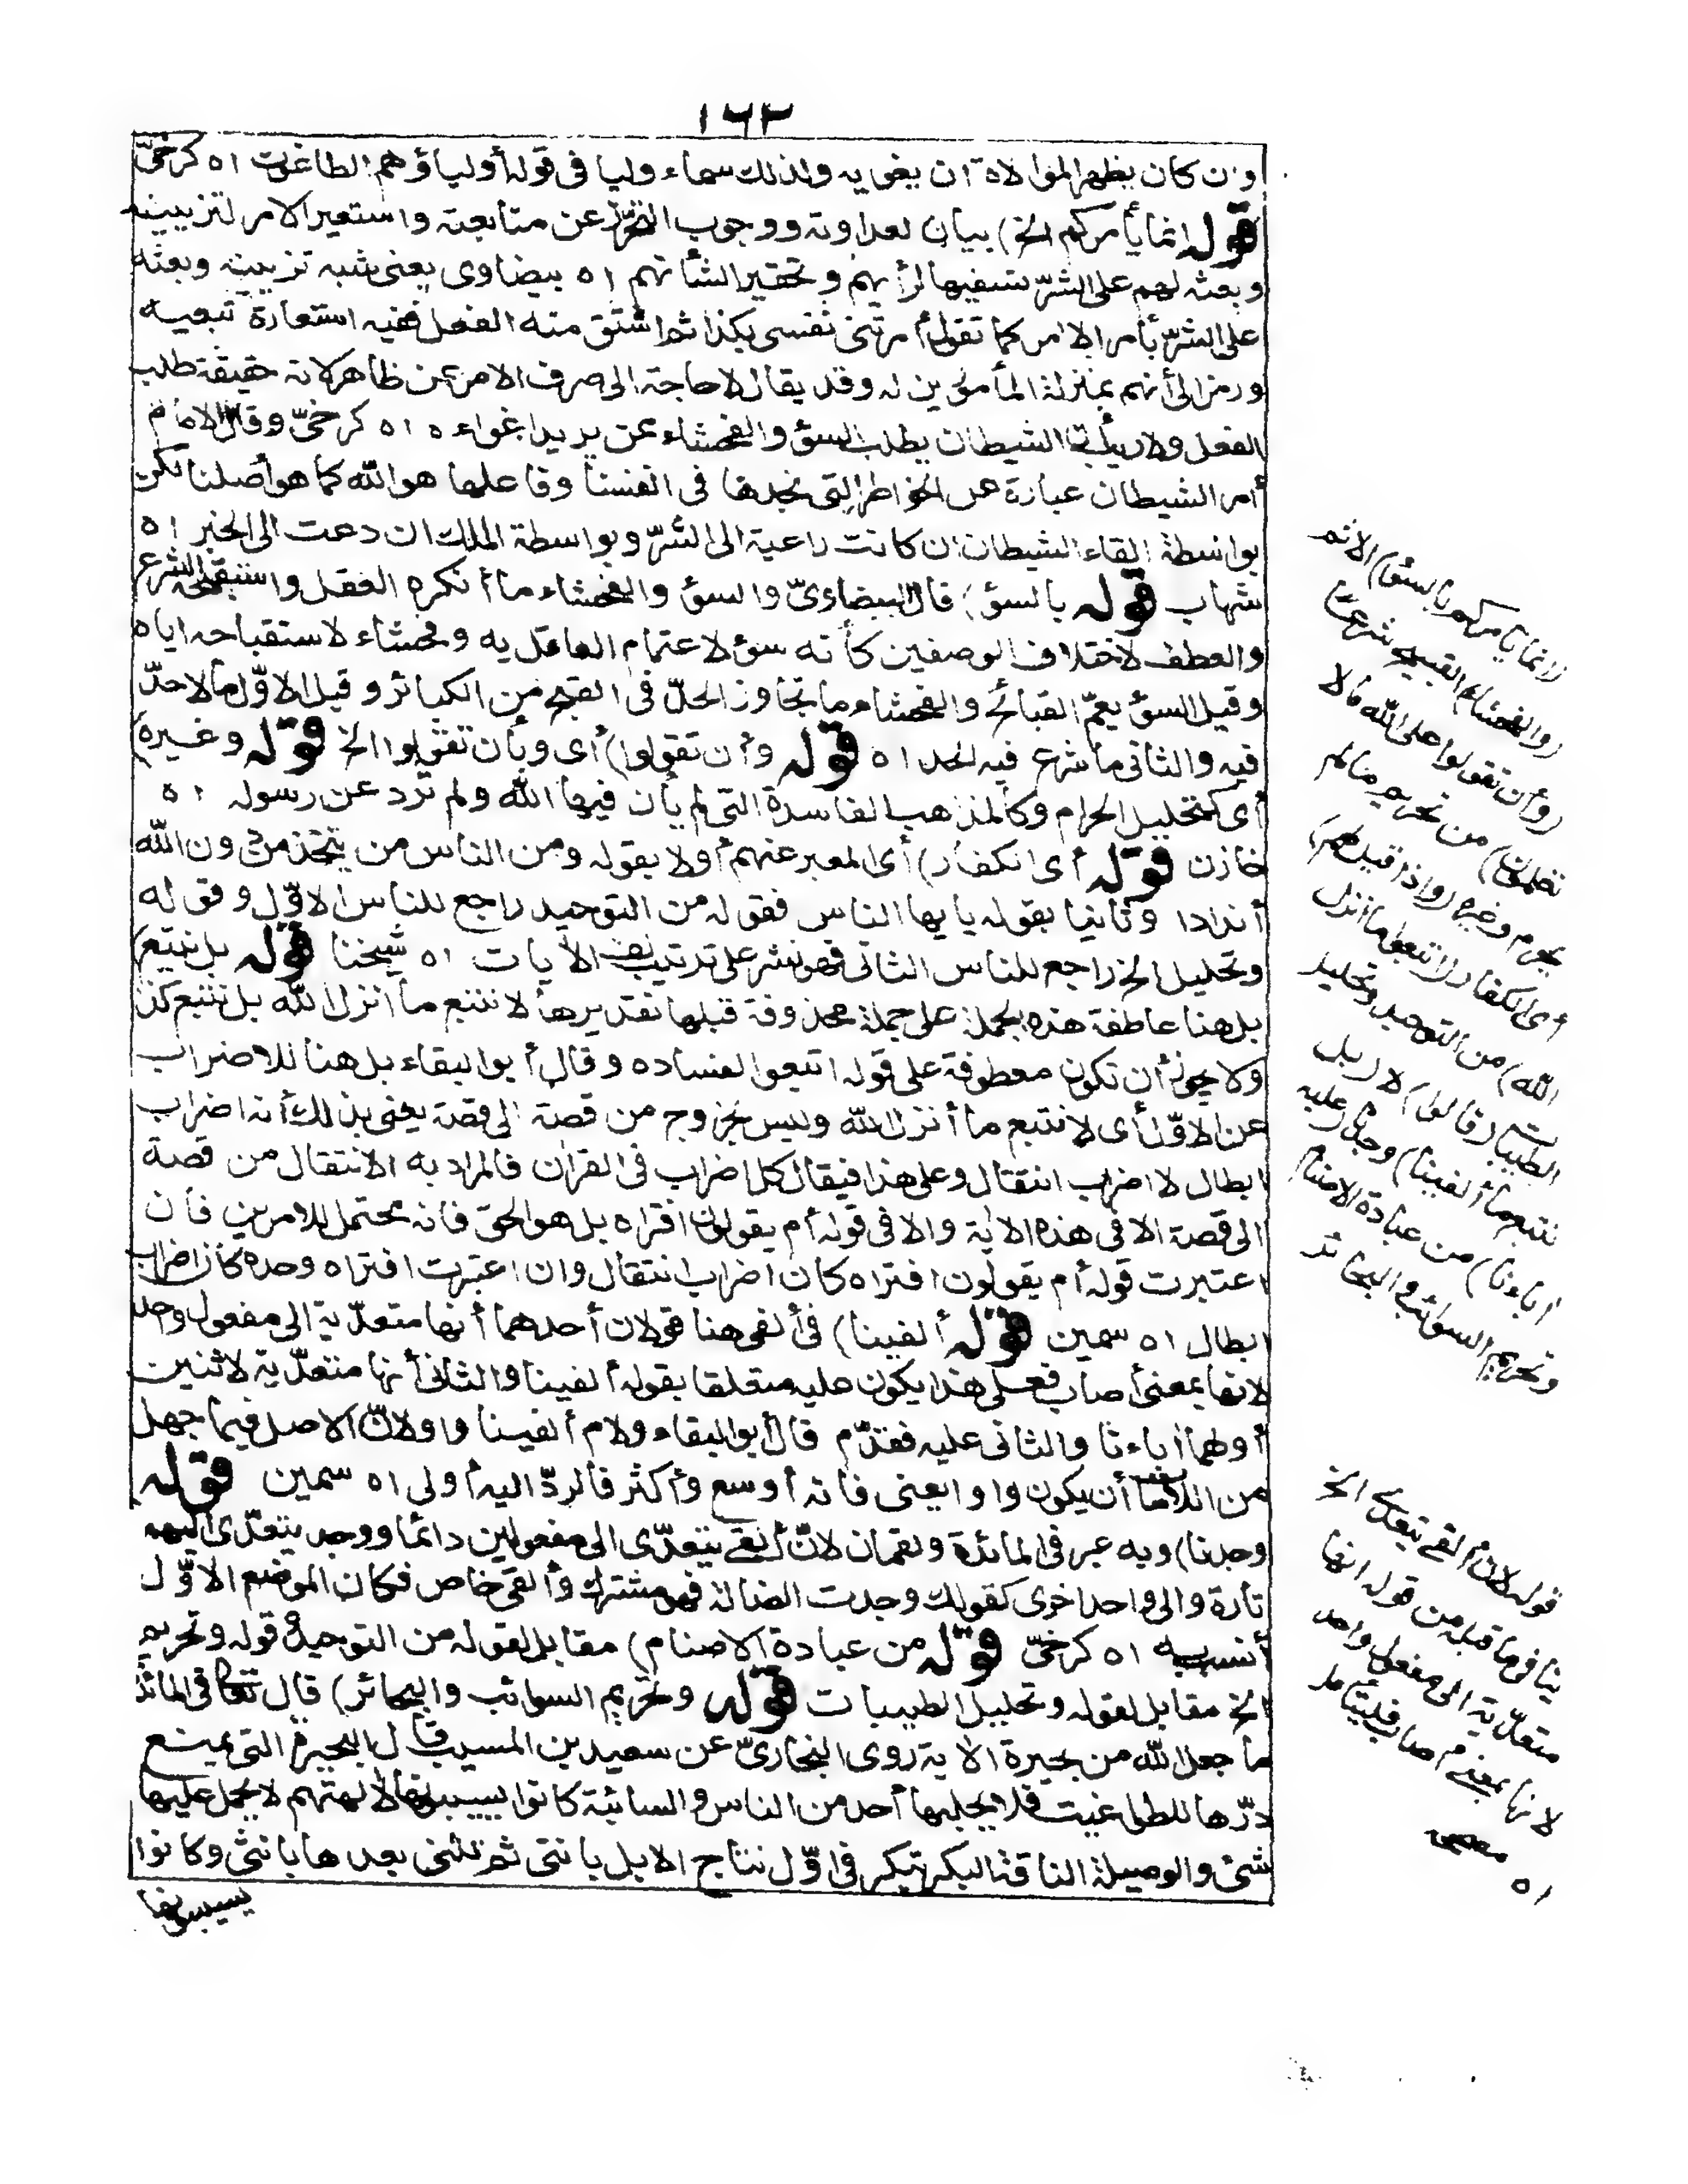 ١٦٢
وان كان يظهر الموالاة ان يغويه ولذلك سماه وليا فى قوله أولياؤهم الطاغوت اه كرخىّ
قوله انما يأمركم الخ) بيان لعداوته ووجوب التحرّز عن متابعته واستعير الامر لتزيينه
وبعثه لهم على الشرّ تسفيها لرأيهم وتحقيرا لشأنهم اه بيضاوى يعنى شبه تزيينه وبعثه
على الشرّ بأمر الامر كما تقول أمرتنى نفسى بكذا ثم اشتق منه الفعل ففيه استعارة تبعيه
ورمز الى أنهم بمنزلة المأمورين له وقد يقال لا حاجة الى صرف الامر عن ظاهره لانه حقيقة طلب
الفعل ولا ريب أن الشيطان يطلب السوء والفحشاء ممن يريد اغواءه اه كرخىّ وقال الامام
أمر الشيطان عبارة عن الخواطر التى نجدها فى انفسنا وفاعلها هو الله كما هو أصلنا لكن
بواسطة القاء الشيطان ان كانت داعية الى الشرّ وبواسطة الملك ان دعت الى الخير اه
شهاب قوله بالسوء) قال البيضاوىّ والسوء والفحشاء ما أنكره العقل واستقبحه الشرع
والعطف لاختلاف الوصفين كأنه سوء لاغتمام العاقل به وفحشاء لاستقباحه اياه
وقيل السوء يعمّ القبائح والفحشاء ما تجاوز الحدّ فى القبح من الكبائر وقيل الاوّل ما لا حدّ
فيه والثانى ما شرع فيه الحد اه قوله وأن تقولوا) أى وبأن تقولوا الخ قوله وغيره)
أى كتحليل الحرام وكالمذهب الفاسدة التى لم يأذن فيها الله ولم ترد عن رسوله اه
خازن قوله أى الكفار) أى المعبر عنهم أولا بقوله ومن الناس من يتخذ من دون الله
أندادا وثانيا بقوله يايها الناس فقوله من التوحيد راجع للناس الاوّل وقوله
وتحليل الخ راجع للناس الثانى فهو نشر على ترتيب لف الآيات اه شيخنا قوله بل نتبع)
بل هنا عاطفة هذه الجملة على جملة محذوفة قبلها تقديرها لا نتبع ما أنزل الله بل نتبع كذا
ولا يجوز أن تكون معطوفة على قوله اتبعوا لفساده وقال أبو البقاء بل هنا للاضراب
عن الاوّل أى لا نتبع ما أنزل الله وليس بخروج من قصة الى قصة يعنى بذلك أنه اضراب
ابطال لا اضراب انتقال وعلى هذا فيقال كل اضراب فى القرآن فالمراد به الانتقال من قصة
الى قصة الا فى هذه الآية والا فى قوله أم يقولون افتراه بل هو الحق فانه محتمل للامرين فان
اعتبرت قوله أم يقولون افتراه كان اضراب انتقال وان اعتبرت افتراه وحده كان اضراب
ابطال اه سمين قوله ألفينا) فى ألفى هنا قولان أحدهما أنها متعدّية الى مفعول واحد
لانها بمعنى أصاب فعلى هذا يكون عليه متعلقا بقوله ألفينا والثانى أنها متعدّية لاثنين
أولهما آباءنا والثانى عليه فقدّم قال أبو البقاء ولام ألفينا واو لانّ الاصل فيما جهل
من اللامات أن يكون واوا يعنى فانه أوسع وأكثر فالردّ اليه أولى اه سمين قوله
وجدنا) وبه عبر فى المائدة ولقمان لانّ ألفى يتعدّى الى مفعولين دائما ووجد يتعدّى اليهما
تارة والى واحد اخرى كقولك وجدت الضالة فهو مشترك وألفى خاص فكان الموضع الاوّل
أنسب به اه كرخىّ قوله من عبادة الاصنام) مقابل لقوله من التوحيد وقوله وتحريم
الخ مقابل لقوله وتحليل الطيبات قوله وتحريم السوائب والبحائر) قال تعالى فى المائدة
ما جعل الله من بحيرة الآية روى البخارىّ عن سعيد بن المسيب قال البحيرة التى يمنع
درّها للطواغيت فلا يحلبها أحد من الناس والسائبة كانوا يسيبونها لآلهتهم لا يحمل عليها
شئ والوصيلة الناقة البكر تبكر فى اوّل نتاج الابل بانثى ثم تثنى بعدها بانثى وكانوا
يسيبونها
(انما يأمركم بالسوء) الاثم
(والفحشاء) القبيح شرعا
(وأن تقولوا على الله ما لا
تعلمون) من تحريم ما لم
يحرم وغيره (واذا قيل لهم)
أى الكفار (اتبعوا ما أنزل
الله) من التوحيد وتحليل
الطيبات (قالوا) لا (بل
نتبع ما ألفينا) وجدنا (عليه
آباءنا) من عبادة الاصنام
وتحريم السوائب والبحائر
قوله لانّ ألفى يتعدى الخ
ينافى ما قبله من قوله انها
متعدّية الى مفعول واحد
لانها بمعنى أصاب فليتأمل
اه